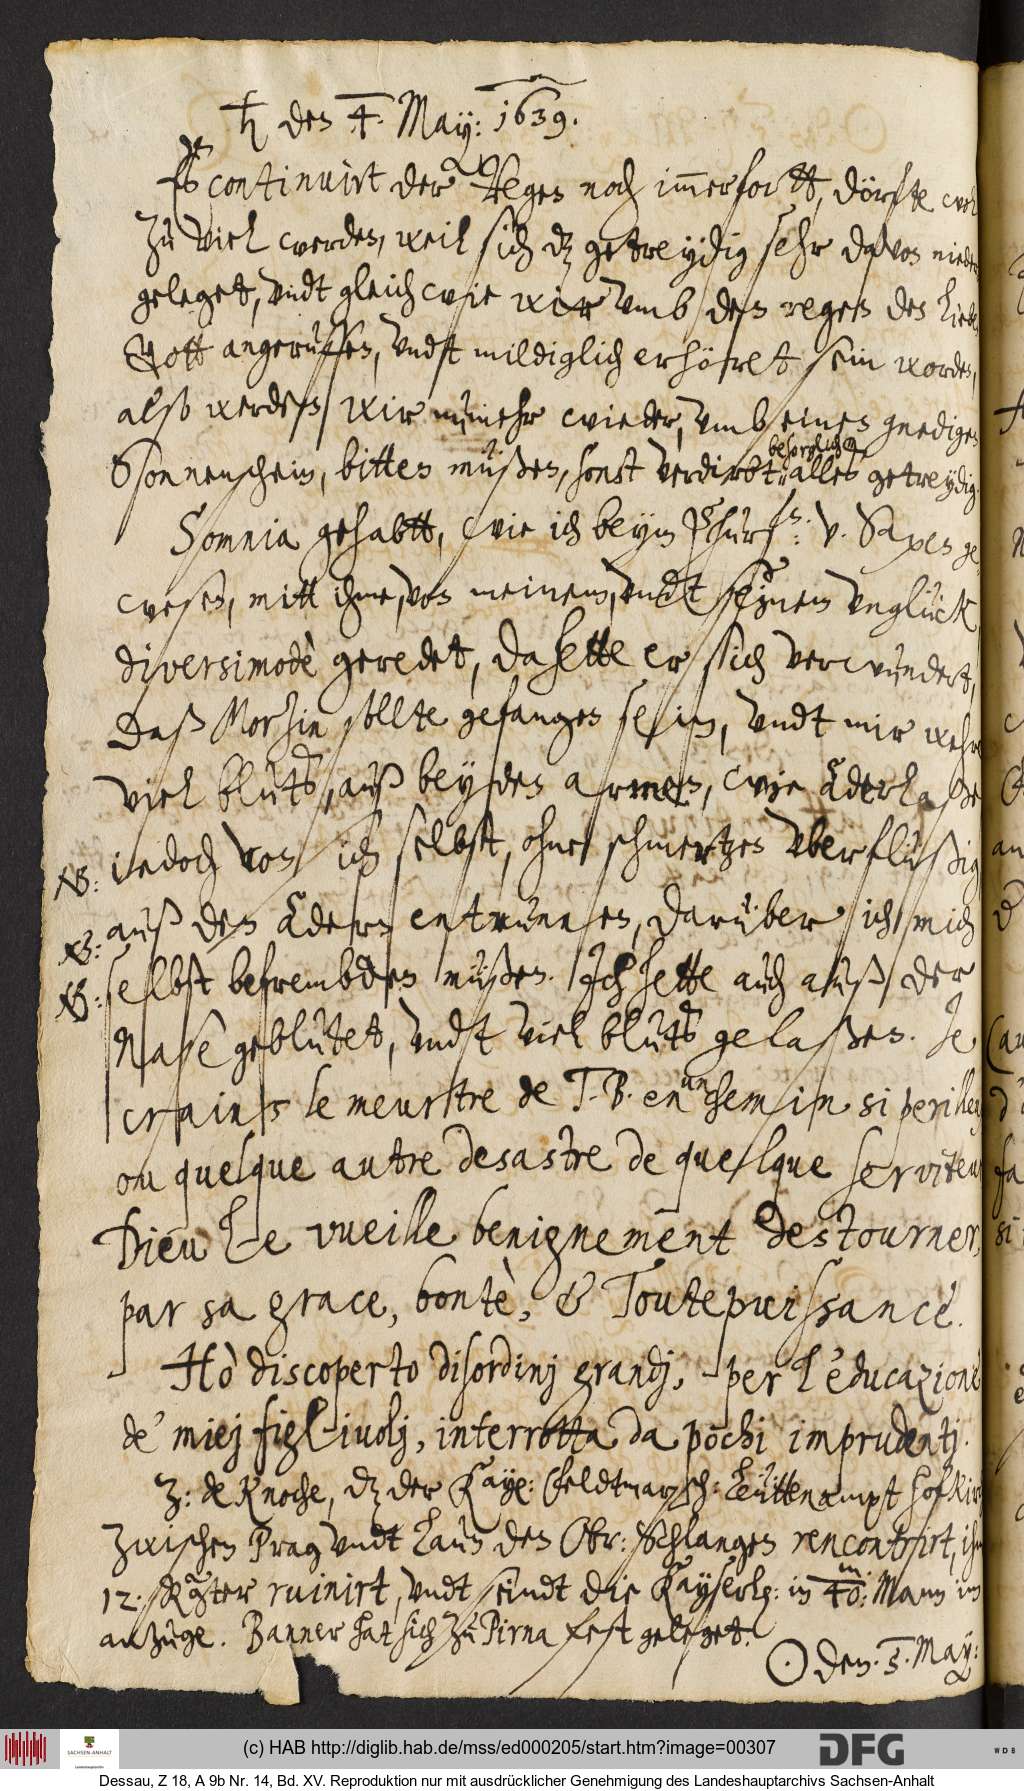 ♄ den 4. May: 1639.
Es continuirt der Regen noch im̅erfortt, dörfte
zu viel werden, weil sich dz getreydig sehr davon nieder
geleget, undt gleich wie wir umb den regen den Lieben
Gott angeruffen, undt mildiglich erhöret sein worden,
also werden wir nu̅mehr wieder, umb einen gnedigen
Sonnenschein, bitten müßen, sonst verdirbt besorglich alles getreydig.
Somnia gehabtt, wie ich beym Churf: v. Saxen ge-
wesen, mitt ihme, von meinem, undt seinem unglück
diversimodè geredet, da hette er sich verwundert,
daß Morhin sollte gefangen sein, undt mir wehre
viel bluts, auß beyden armen, wie Aderlaße
NB: iedoch von sich selbst, ohne schmertzen uberflüßig
NB: auß den Adern entrunnen, darüber ich mich
NB: selbst befrembden müßen. Ich hette auch auß der
Nase geblutet, undt viel bluts gelaßen. Je
crains le meurstre de T. B. en un chemin si perilleux
ou quelque autre desastre de quelque serviteur
Dieu Le vueille benignement destourner,
par sa grace, bontè, & Toutepuissance.
Hò discoperto disordinj grandj, per l'educazione
de' miej figlivolj, interrotta da pochi imprudentj.
Z: de Knoche, dz der Kay: Feldtmarsch: Leüttenampt Hofkirch
zwischen Prag undt Laun den Obr: Schlangen rencontrirt, ihm
12. Regimenter ruinirt, undt seindt die Kayserl: in 40: m. Mann im
anzuge. Banner hat sich zu Pirna fest geleget.
☉ den. 5. May:
(c) HAB http://diglib.hab.de/mss/ed000205/start.htm?image=00307
SACHSEN-ANHALT
DFG
WDB
Dessau, Z 18, A 9b Nr. 14, Bd. XV. Reproduktion nur mit ausdrücklicher Genehmigung des Landeshauptarchivs Sachsen-Anhalt